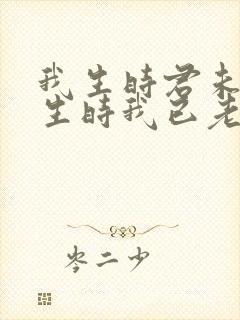 我生时君未
生时我已老
岑二少